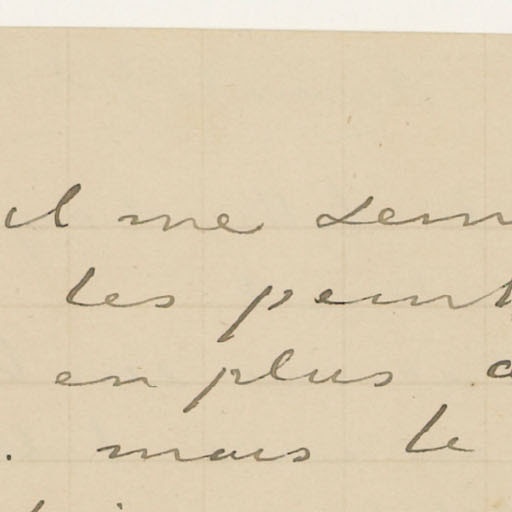 il me sem
les peint
en plus
. mais le